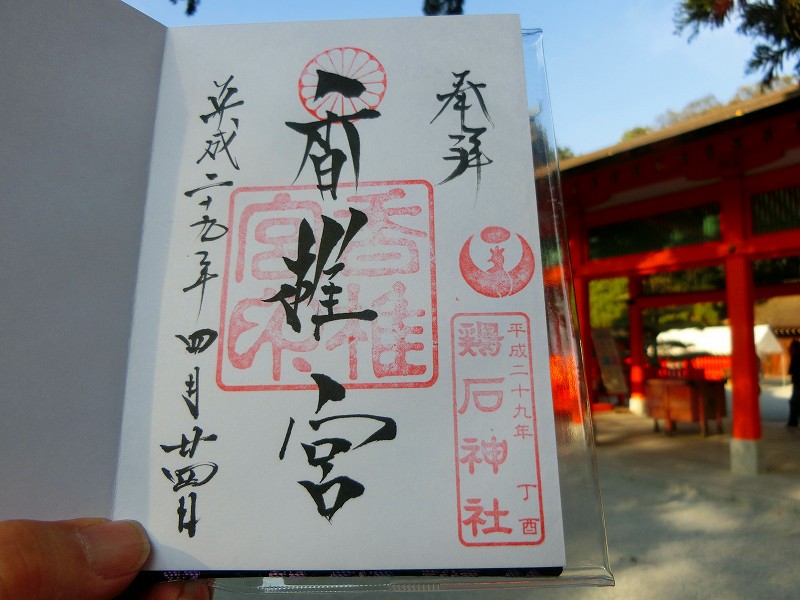 奉拝
平成二十九年 丁酉
鶏石神社
香椎宮
香椎宮印
平成二十九年 四月 廿四日